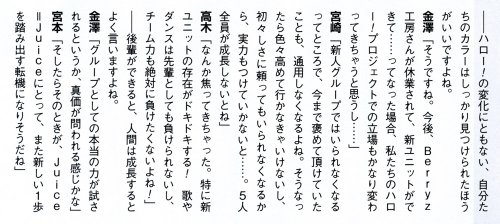 ――ハロー!の変化にともない、自分た
ちのカラーはしっかり見つけられたほう
がいいですよね。
金澤「そうですね。今後、Berryz
工房さんが休業されて、新ユニットがで
きて……ってなった場合、私たちのハロ
ー!プロジェクトでの立場もかなり変わ
ってきちゃうと思うし……」
宮崎「新人グループではいられなくなる
ってところで、今まで褒めて頂けていた
ことも、通用しなくなるよね。そうなっ
たら色々高めて行かなきゃいけないし、
初々しさに頼ってもいられなくなるか
ら、実力もつけていかないと……。5人
全員が成長しないとね」
高木「なんか焦ってきちゃった。特に新
ユニットの存在がドキドキする! 歌や
ダンスは先輩としても負けられないし、
チーム力も絶対に負けたくないよね!
 後輩ができると、人間は成長すると
よく言いますよね。
金澤「グループとしての本当の力が試さ
れるというか、真価が問われる感じかな」
宮本「そしたらそのときが、Juice
=Juiceにとって、また新しい1歩
を踏み出す転機になりそうだね」